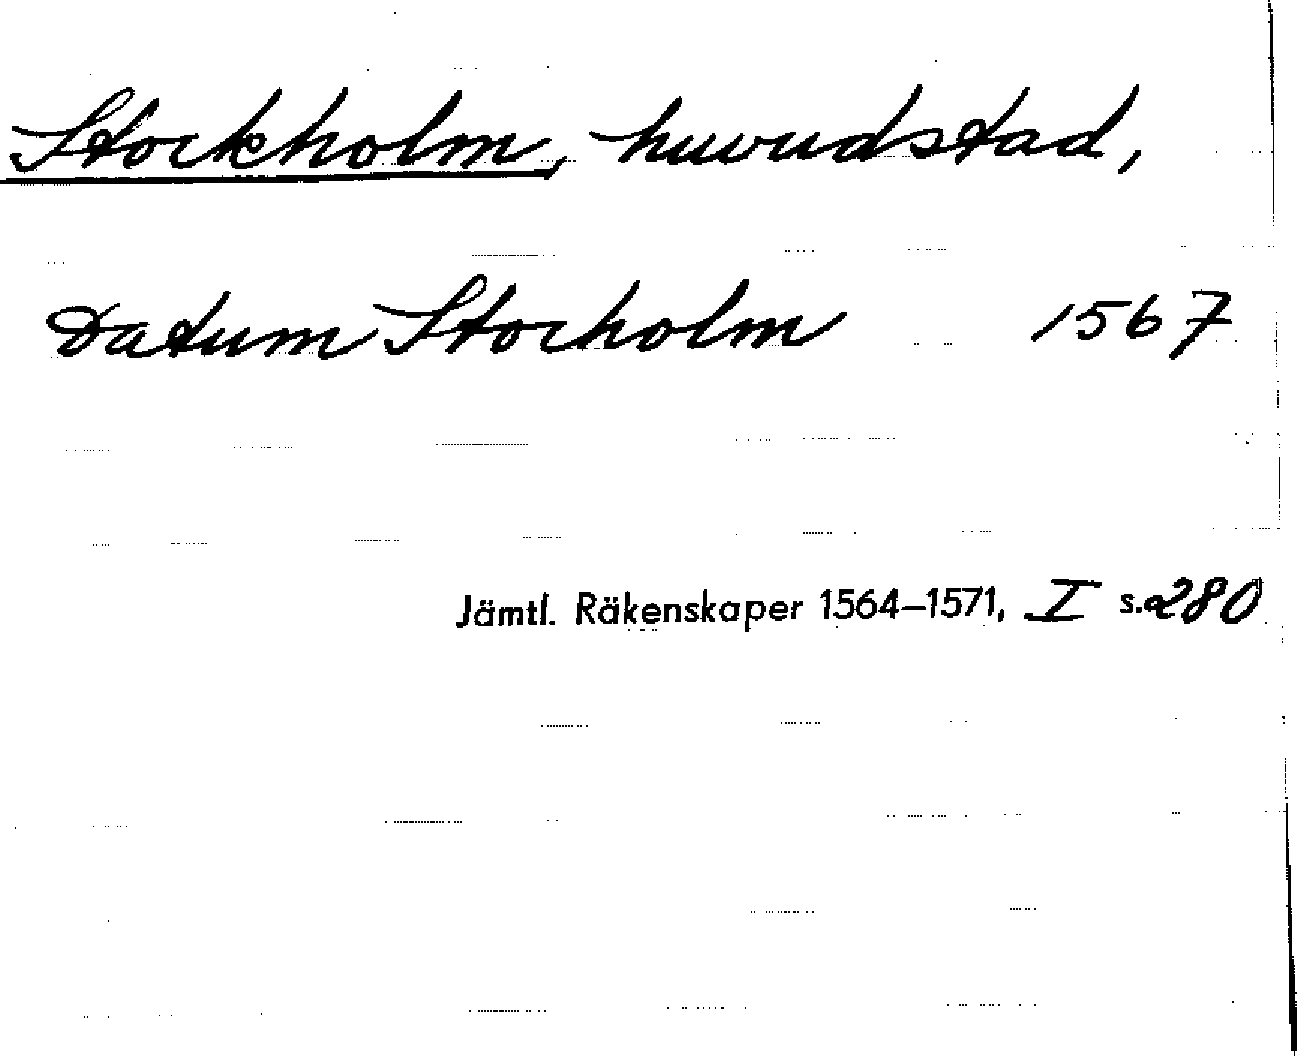 Stockholm, huvudstad,
Datum Stocholm 1567
Jämtl. Räkenskaper 1564–1571, I s. 280